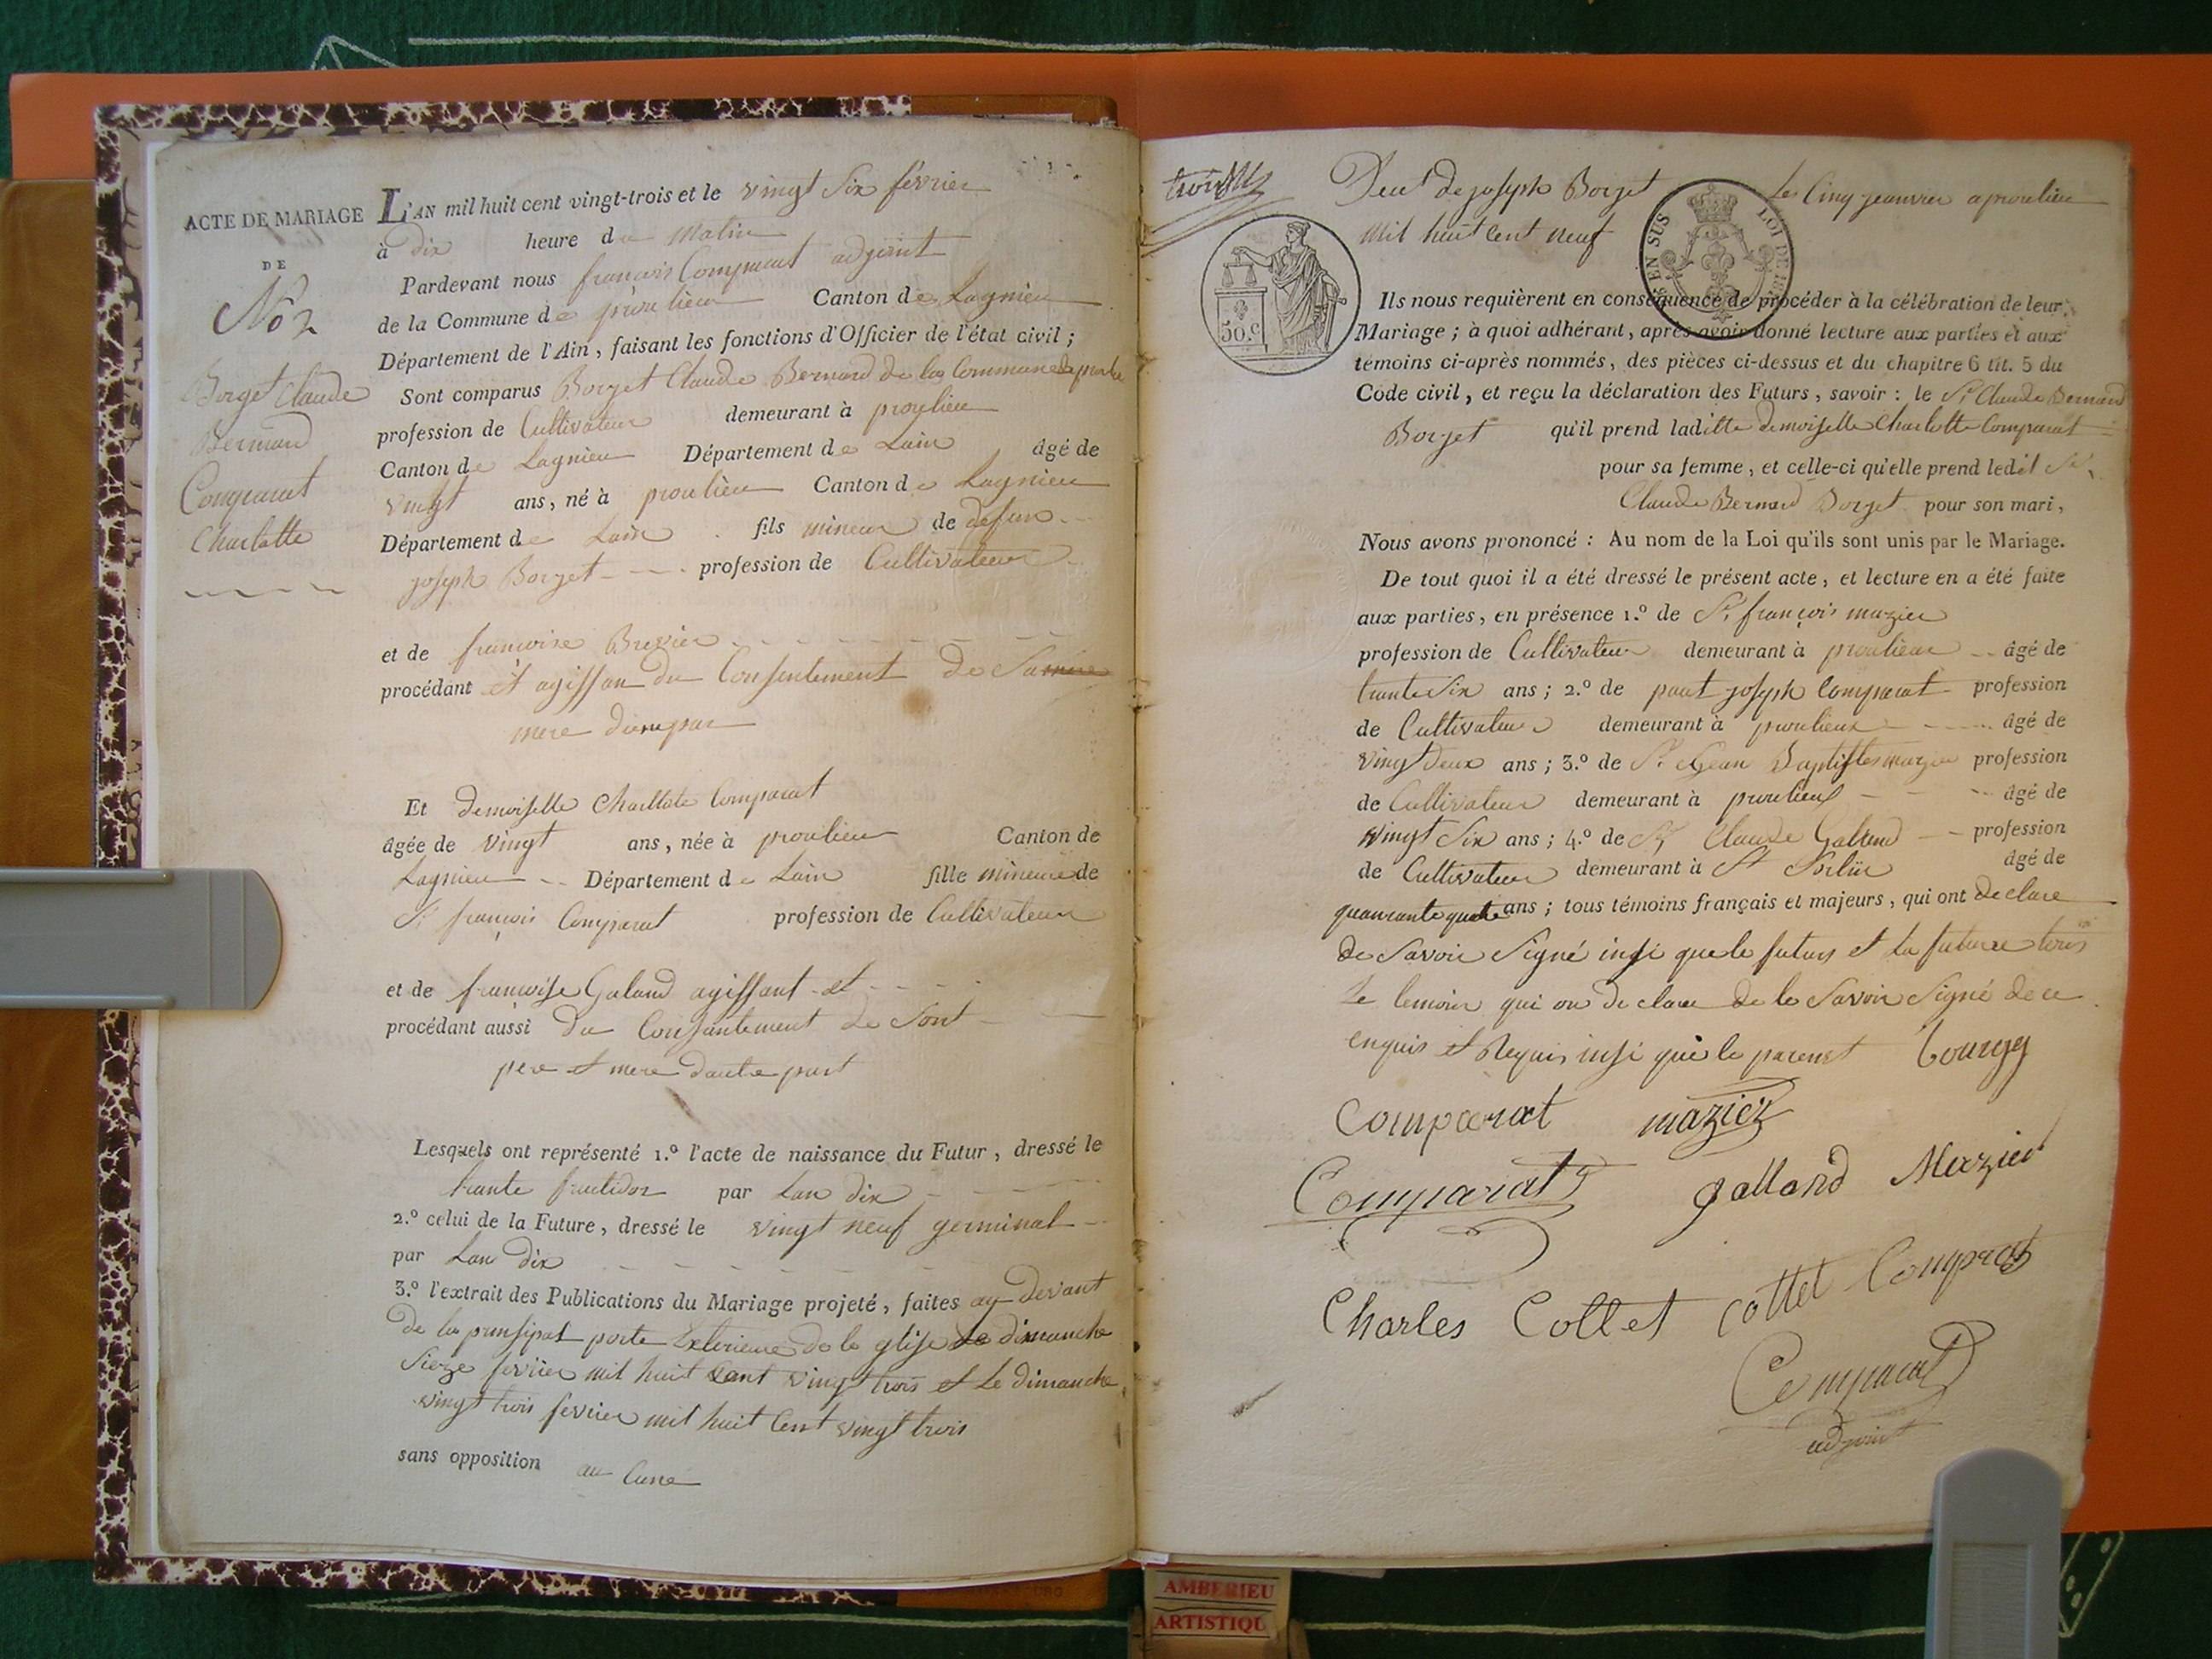 ACTE DE MARIAGE
DE
No 2
Borget Claude
Bernard
Comparat
Charlotte
L'AN mil huit cent vingt-trois et le vingt Six février
à dix heure du Matin
Pardevant nous françois Comparat adjoint
de la Commune de proulieu Canton de Lagnieu
Département de l'Ain, faisant les fonctions d'Officier de l'état civil ;
Sont comparus Borget Claude Bernard de la Commune de
profession de Cultivateur demeurant à proulieu
Canton de Lagnieu Département de Lain âgé de
vingt ans, né à proulieu Canton de Lagnieu
Département de Lain fils mineur de defun
joseph Borget profession de Cultivateur
et de francoise Brevier
procédant et agissan du Consentement de Sa
mere dunepar
Et demoiselle Charllote Comparat
âgée de vingt ans, née à proulieu Canton de
Lagnieu Département de Lain fille mineure de
Sr françois Comparat profession de Cultivateur
et de françoise Galand agissant et
procédant aussi du Consentement de Sont
pere et mere dautre part
Lesquels ont représenté 1.º l'acte de naissance du Futur, dressé le
trante fructidor par Lan dix
2.º celui de la Future, dressé le vingt neuf germinal
par Lan dix
3.º l'extrait des Publications du Mariage projeté, faites ay devant
de la prinsipal porte Exterieure de le glise le dimanche
Sieze fevrier mil huit Cent vingt trois et Le dimanche
vingt trois fevrier mil huit Cent vingt trois
sans opposition au Cune
Deut de joseph Borget Le Cinq jeanvier a proulieu
Mil huit Cent neuf
EN SUS LOI DE
50.c
Ils nous requièrent en conséquence de procéder à la célébration de leur
Mariage ; à quoi adhérant, après avoir donné lecture aux parties et aux
témoins ci-après nommés, des pièces ci-dessus et du chapitre 6 tit. 5 du
Code civil, et reçu la déclaration des Futurs, savoir : le Sr Claude Bernard
Borget qu'il prend laditte demoiselle Charlotte Comparat
pour sa femme, et celle-ci qu'elle prend ledit Sr
Claude Bernard Borget pour son mari,
Nous avons prononcé : Au nom de la Loi qu'ils sont unis par le Mariage.
De tout quoi il a été dressé le présent acte, et lecture en a été faite
aux parties, en présence 1.º de Sr françois mazier
profession de Cultivateur demeurant à proulieu âgé de
trante Six ans ; 2.º de paul joseph Comparat profession
de Cultivateur demeurant à proulieu âgé de
vingt deux ans ; 3.º de Sr Jean Baptiste mazier profession
de Cultivateur demeurant à proulieu âgé de
vingt Six ans ; 4.º de Sr Claude Galland profession
de Cultivateur demeurant à St Sorlin âgé de
quarante quatre ans ; tous témoins français et majeurs, qui ont declare
de Savoir Signé insi que le futurs et La future tous
Le temoin qui on declare de le Savoir Signé de ce
enquis et Requis insi que le parenst
Comparat mazier
Comparat galland Mazier
Charles Collet Collet Comprat
Comparat
adjoint
AMBERIEU
ARTISTIQU